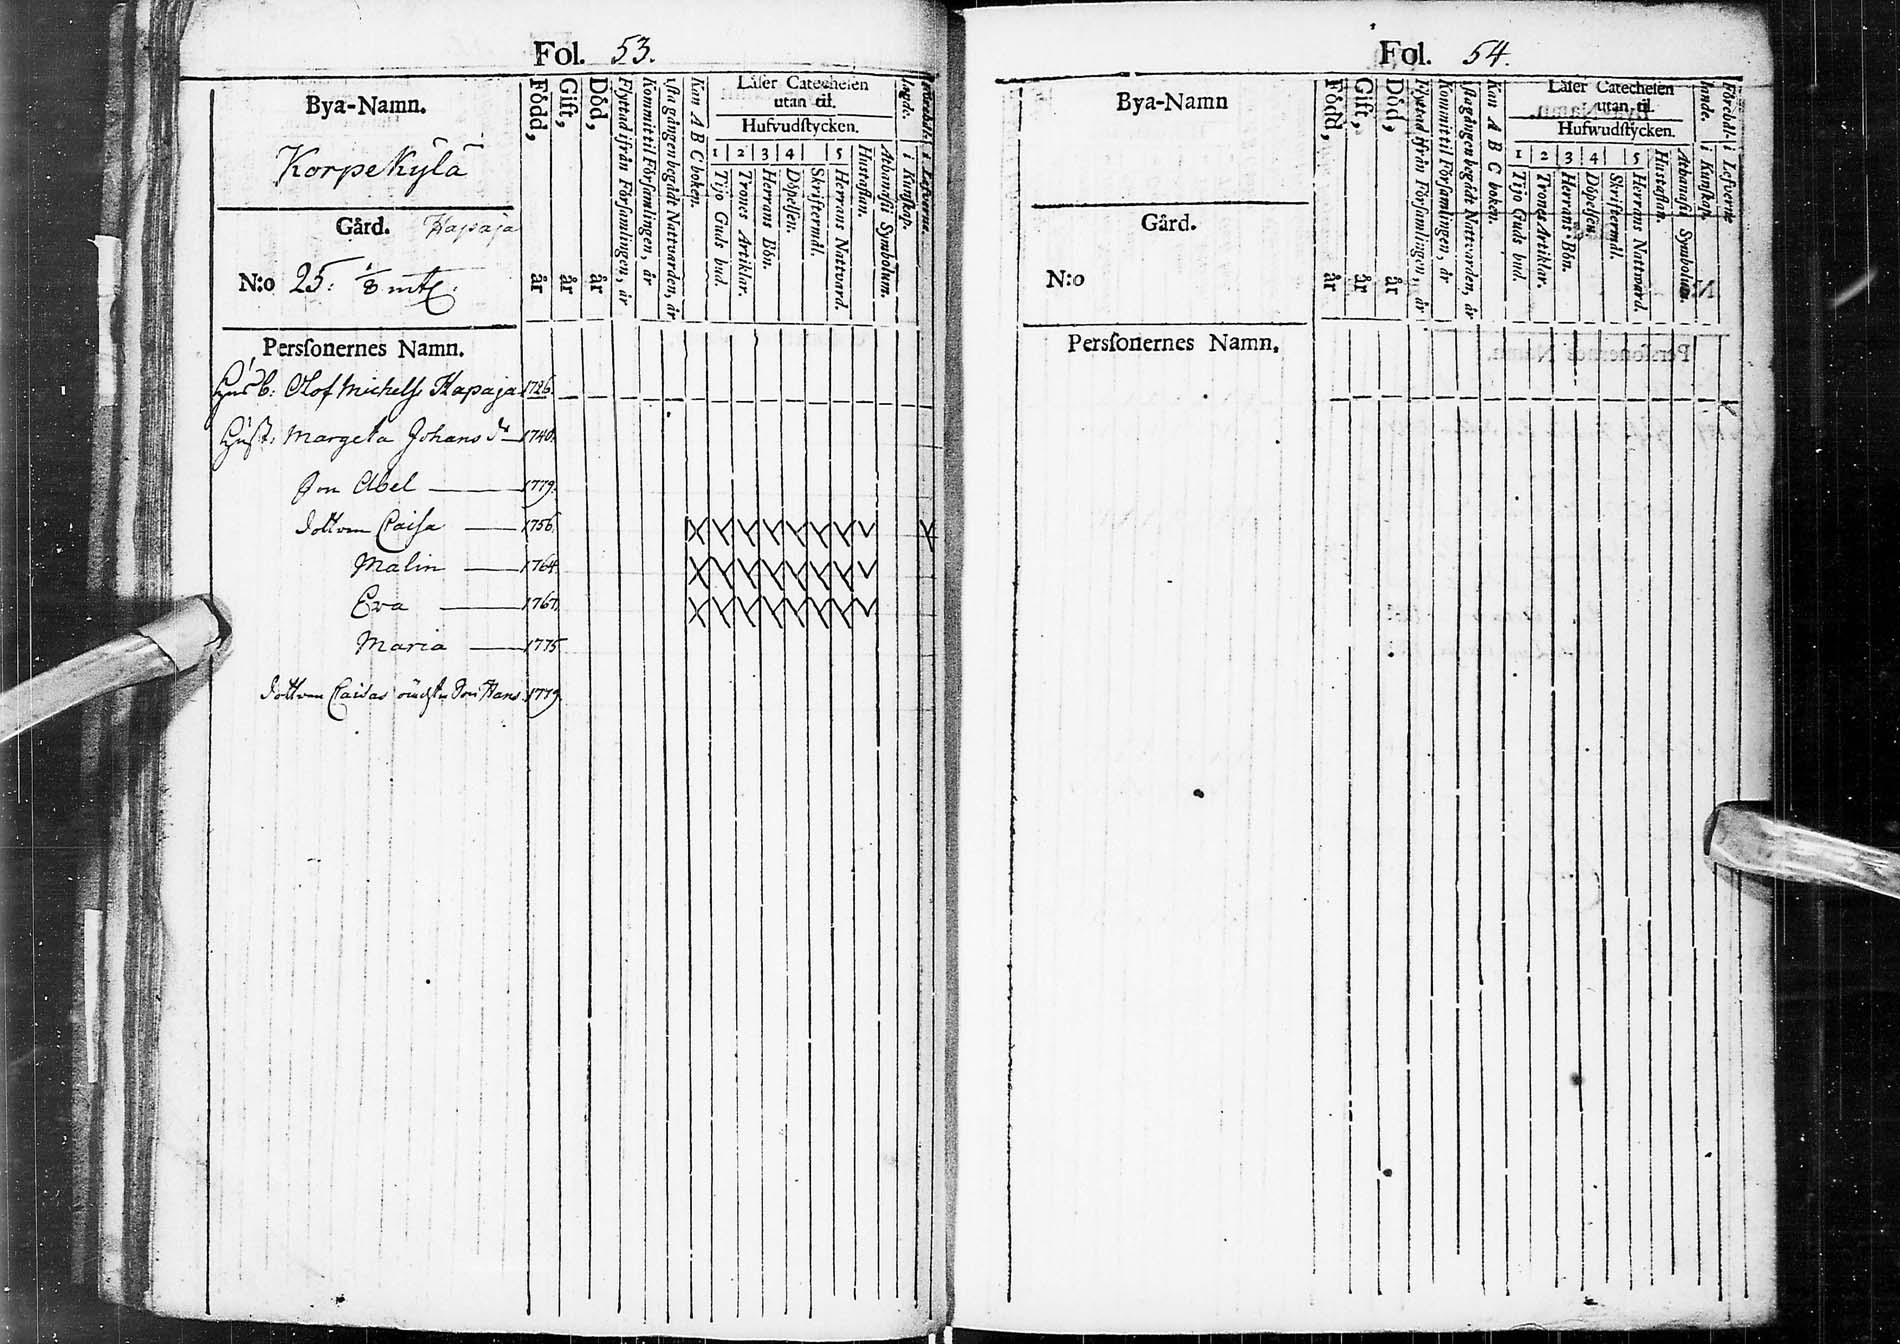 Fol. 53.
Bya-Namn.
Korpekylä
Gård. Hapaja
N:o 25. 1/8 mtl.
Personernes Namn.
Född, år
Gift, år
Död, år
Flyttad ifrån Församlingen, år
Kommit til Församlingen, år
1sta gången begådt Nattvarden, år
Kan A B C boken.
Läser Catechesen
utan til.
Hufvudstycken.
1 2 3 4 5
Tijo Guds bud.
Trones Artiklar.
Herrans Bön.
Döpelsen.
Skriftermål.
Herrans Nattvard.
Hustaflan.
Athanasii Symbolum.
i Kunskap.
i Lefverne.
Husb: Olof Michelss Hapaja 1726.
Hust: Margeta Johans dr 1740.
Son Abel 1779.
Dottren Caisa 1756.
Malin 1764.
Eva 1767.
Maria 1775
Dottren Caisas oächta Son Hans 1779.
Fol. 54.
Bya-Namn
Gård.
N:o
Personernes Namn.
Född, år
Gift, år
Död, år
Flyttad ifrån Församlingen, år
Kommit til Församlingen, år
1sta gången begådt Nattvarden, år
Kan A B C boken.
Läser Catechesen
utan til.
Hufwudstycken.
1 2 3 4 5
Tijo Guds bud.
Trones Artiklar.
Herrans Bön.
Döpelsen.
Skriftermål.
Herrans Nattvard.
Hustaflan.
Athanasii Symbolum.
Förehål-
lande.
i Kunskap.
i Lefverne